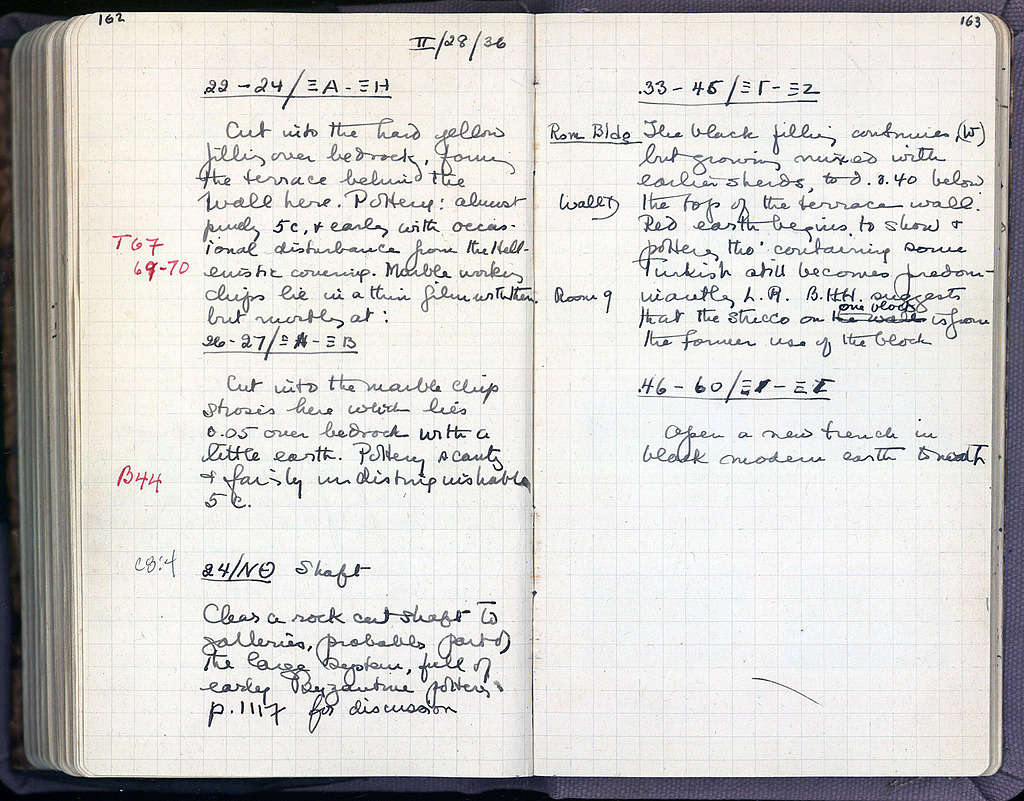 162
II/28/36
22-24/ΞA-ΞH
Cut into the hard yellow
filling over bedrock, forming
the terrace behind the
wall here. Pottery: almost
purely 5c, & early with occas-
T67 ional disturbance from the Hell-
69-70 enistic covering. Marble workers
chips lie in a thin film with them.
but mostly at:
26-27/ΞB
Cut into the marble chip
strosis here which lies
0.05 over bedrock with a
little earth. Pottery scanty
B44 & fairly undistinguishable
5c.
C8:4 24/NΘ Shaft
Clear a rock cut shaft to
galleries, probably part of
the large system, full of
early Byzantine pottery
p.1117 for discussion
163
33-45/ΞΓ-ΞZ
Rom Bldg The black filling continues (W)
but growing mixed with
earlier sherds, to d. 0.40 below
Wall the top of the terrace wall.
Red earth begins to show &
pottery tho' containing some
Turkish still becomes predom-
Room 9 inantly L.R. B.H.H. suggests
one block
that the stucco on the wall is from
the former use of the block
46-60/Ξ
Open a new trench in
black modern earth to north